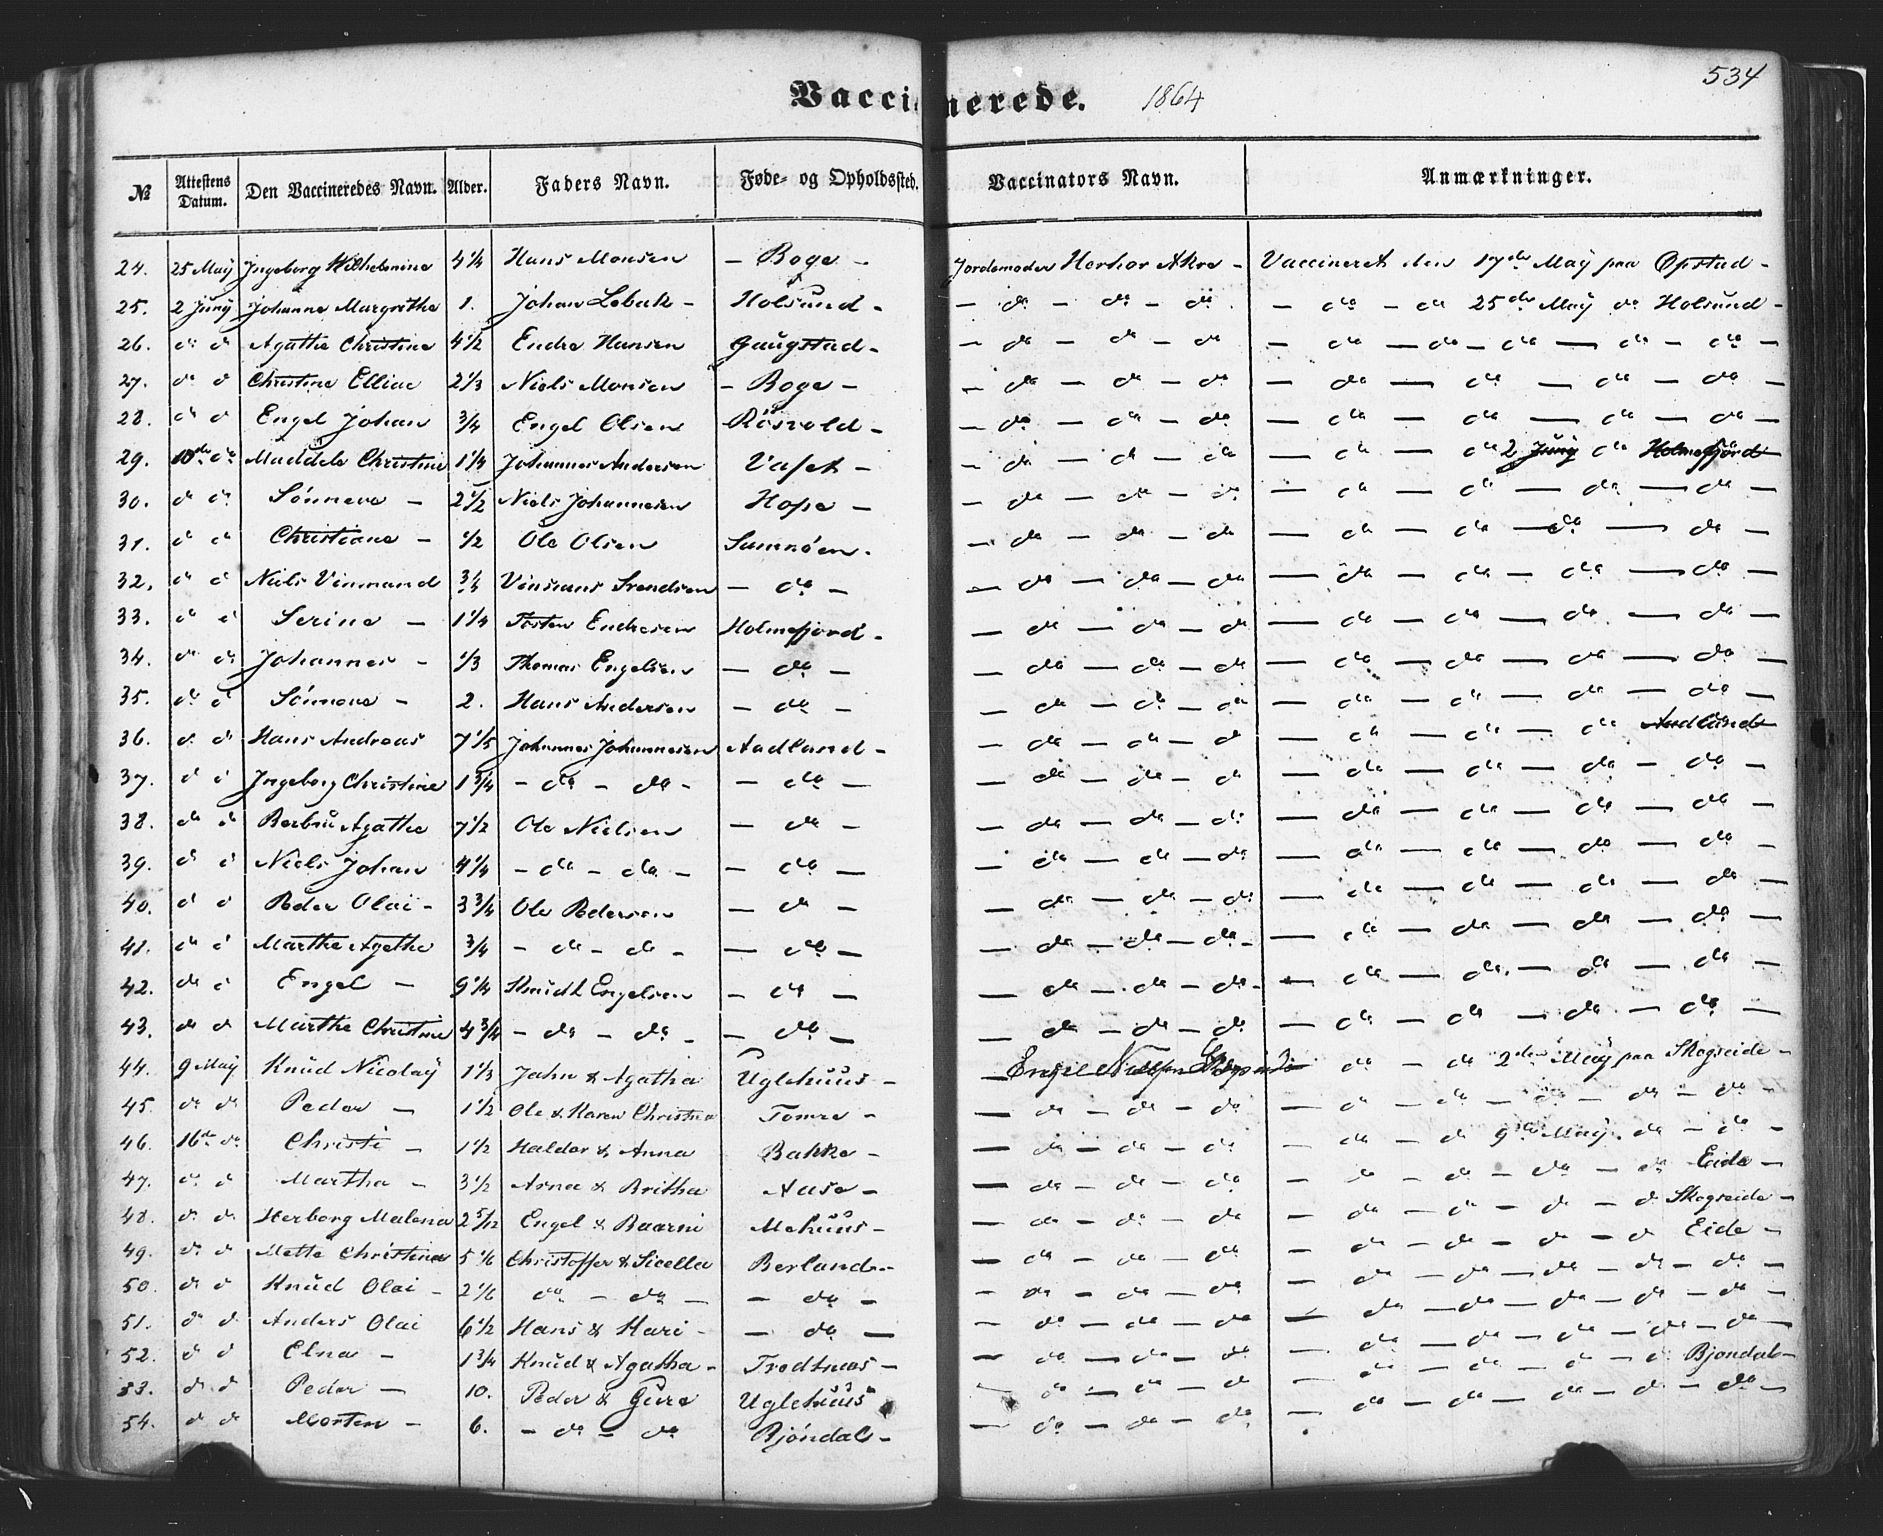 534
Vaccinerede. 1864
№ | Attestens Datum. | Den Vaccineredes Navn. | Alder. | Faders Navn. | Føde- og Opholdssted. | Vaccinators Navn. | Anmærkninger.
24. 25 Maÿ Ingeborg Wilhelmine 4 1/4 Hans Monsen – Boge – Jordemoder Herbor Akre – Vaccineret den 17de Maÿ paa Øfstad –
25. 2 Junÿ Johanne Margrethe 1. Johan Lebak – Holsund – – do – do – do – do – do 25de Maÿ do Holsund –
26. do do Agathe Christine 4 1/2 Endre Hansen Gaugstad – – do – do – do – do – do – do – do – do –
27. do d Christine Elliae 2 1/3 Niels Monsen – Boge – – do – do – do – do – do – do – do –
28. do d Engel Johan 3/4 Engel Olsen Rösvold – – do – do – do – do – do – do – do –
29. 10de do Maddele Christine 1 1/4 Johannes Andersen Vaset – – do – d – do – do – do 2 Junÿ do Holmefjord
30. do do Sönneva – 2 1/2 Niels Johannesen Hope – – do – do – do – do – do – do – do –
31. d do Christiane – 1/2 Ole Olsen Samnöen. – do – do – do – do – do – do – do –
32. d d Niels Vinmand 3/4 Vinsans Svendsen – do – – do – do – do – do – do – do – do –
33. do d Serine – 1 1/4 Tosten Endresen Holmefjord – – do – do – do – do – do – do – do –
34. do do Johannes – 1/3 Thomas Engelsen – do – – do – do – do – do – do – do – do –
35. do d Sönneva – 2. Hans Andersen – do – – do – do – do – do – do – do – do –
36. d do Hans Andreas 7 1/5 Johannes Johannesen Aadland – – do – do – d – do – do – do Aadland
37. d d Ingeborg Christine 1 3/4 – do – do – – do – – do – do – d – do – do – do – do –
38. do d Berbru Agathe 7 1/2 Ole Nielsen – do – – do – do – do – do – do – do – do –
39. d d Niels Johan 4 1/4 – do – do – – do – – do – do – do – do – do – do – do –
40. d d Peder Olai – 3 3/4 Ole Pedersen – do – – do – do – do – do – do – do – do –
41. do d Marthe Agethe 3/4 – do – d – – do – – do – do – do – – do – do – do – do –
42. do d Engel – 9 1/4 Knudt Engelsen – do – – do – do – do – – do – do – do – do –
43. do do Marthe Christine 4 3/4 – do – do – – do – – do – do – do – do – do – do – do –
44. 9 Maÿ Knud Nicolaÿ 1 1/3 Jahn & Agatha Uglehuus – Engel Nielsen do – do 2den Maÿ paa Skogseide –
45. do do Peder – 1 1/2 Ole & Karen Christine Tomre – – do – do – do – d – do – do – do – do –
46. 16de do Christi – 1 1/2 Haldor & Anna Bakke – – do – do – do – do – d 9de Maÿ. do – do –
47. do d Martha – 3 1/2 Arna & Britha Aase – – do – do – do – d – do – do – do Eide –
48. do do Herborg Malena 2 5/12 Engel & Baarni Mehuus – – do – do – do – do – do – do – d Skogseide –
49. do d Mette Christina 5 1/6 Christoffer & Sicella Berland – – do – do – do – do – do – do – d Eide –
50. do d Knud Olai – 2 1/6 do – do – – do – – do – do – do – do – do – do – do – do –
51. do d Anders Olai 6 1/2 Hans & Kari – – do – – do – do – do – do – do – do – do – do –
52. do d Elna – 1 3/4 Knud & Agatha – Trodtnæs – – do – do – do – do – do – do – do – do –
53. do d Peder – 10. Peder & Gura Uglehuus – do – do – d – do – do – do – d Bjondal –
54. d do Morten – 6. – do – do Bjöndal – – do – do – do – do – do – do – d – do –